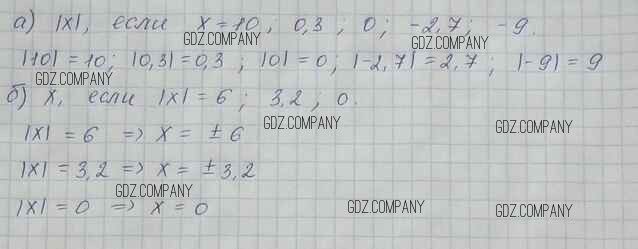 а) |x|, если x = 10; 0,3; 0; -2,7; -9.
GDZ.COMPANY
GDZ.COMPANY
|10| = 10; |0,3| = 0,3; |0| = 0; |-2,7| = 2,7; |-9| = 9
GDZ.COMPANY
б) x, если |x| = 6; 3,2; 0.
GDZ.COMPANY
GDZ.COMPANY
|x| = 6 => x = ± 6
|x| = 3,2 => x = ± 3,2
GDZ.COMPANY
|x| = 0 => x = 0
GDZ.COMPANY
GDZ.COMPANY